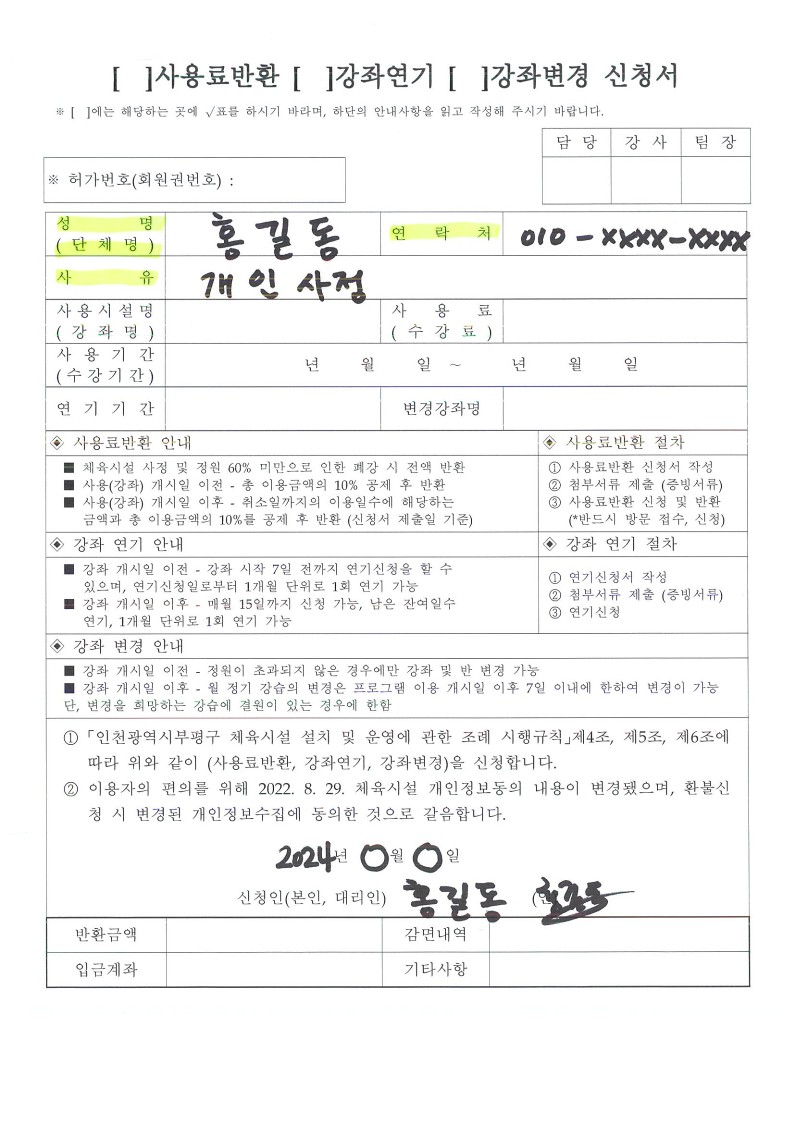 [ ]사용료반환 [ ]강좌연기 [ ]강좌변경 신청서
※ [ ]에는 해당하는 곳에 √표를 하시기 바라며, 하단의 안내사항을 읽고 작성해 주시기 바랍니다.
담 당 강 사 팀 장
※ 허가번호(회원권번호) :
성 명
(단체명)
홍길동
연 락 처
010-xxxx-xxxx
사 유
개인사정
사용시설명
(강좌명)
사 용 료
(수강료)
사 용 기 간
(수강기간)
년 월 일 ~ 년 월 일
연 기 기 간
변경강좌명
◈ 사용료반환 안내
■ 체육시설 사정 및 정원 60% 미만으로 인한 폐강 시 전액 반환
■ 사용(강좌) 개시일 이전 - 총 이용금액의 10% 공제 후 반환
■ 사용(강좌) 개시일 이후 - 취소일까지의 이용일수에 해당하는
금액과 총 이용금액의 10%를 공제 후 반환 (신청서 제출일 기준)
◈ 사용료반환 절차
① 사용료반환 신청서 작성
② 첨부서류 제출 (증빙서류)
③ 사용료반환 신청 및 반환
(*반드시 방문 접수, 신청)
◈ 강좌 연기 안내
■ 강좌 개시일 이전 - 강좌 시작 7일 전까지 연기신청을 할 수
있으며, 연기신청일로부터 1개월 단위로 1회 연기 가능
■ 강좌 개시일 이후 - 매월 15일까지 신청 가능, 남은 잔여일수
연기, 1개월 단위로 1회 연기 가능
◈ 강좌 연기 절차
① 연기신청서 작성
② 첨부서류 제출 (증빙서류)
③ 연기신청
◈ 강좌 변경 안내
■ 강좌 개시일 이전 - 정원이 초과되지 않은 경우에만 강좌 및 반 변경 가능
■ 강좌 개시일 이후 - 월 정기 강습의 변경은 프로그램 이용 개시일 이후 7일 이내에 한하여 변경이 가능
단, 변경을 희망하는 강습에 결원이 있는 경우에 한함
① 「인천광역시부평구 체육시설 설치 및 운영에 관한 조례 시행규칙」제4조, 제5조, 제6조에
따라 위와 같이 (사용료반환, 강좌연기, 강좌변경)을 신청합니다.
② 이용자의 편의를 위해 2022. 8. 29. 체육시설 개인정보동의 내용이 변경됐으며, 환불신
청 시 변경된 개인정보수집에 동의한 것으로 갈음합니다.
2024년 O월 O일
신청인(본인, 대리인) 홍길동 (인 홍길동
반환금액
감면내역
입금계좌
기타사항